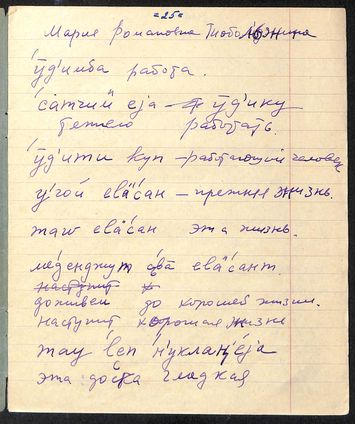 =25=
Мария Романовна
ӯд'имба работа.
сатчий еја – ӯд'ику
тяжело работать.
ӯд'ити куп – работающий человек
угой евӓсан – прежняя жизнь.
тав евӓсан эта жизнь.
меденджут сва евӓсант.
наступит
доживем до хорошей жизни.
наступит хорошая жизнь
тау еја
эта доска гладкая